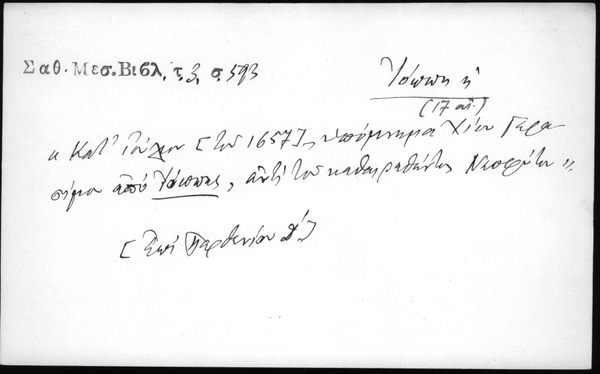 Σαθ. Μεσ. Βιβλ, τ. 3, σ. 593
Ἰόππη ἡ
(17 αἰ.)
« Κατ' Ἰούλιον [τοῦ 1657], ὑπόμνημα Χίου Γερα
σίμου ἀπὸ Ἰόππης, ἀντὶ τοῦ καθαιρεθέντος Νεοφύτου »
[Ἐπὶ Παρθενίου Δ´]